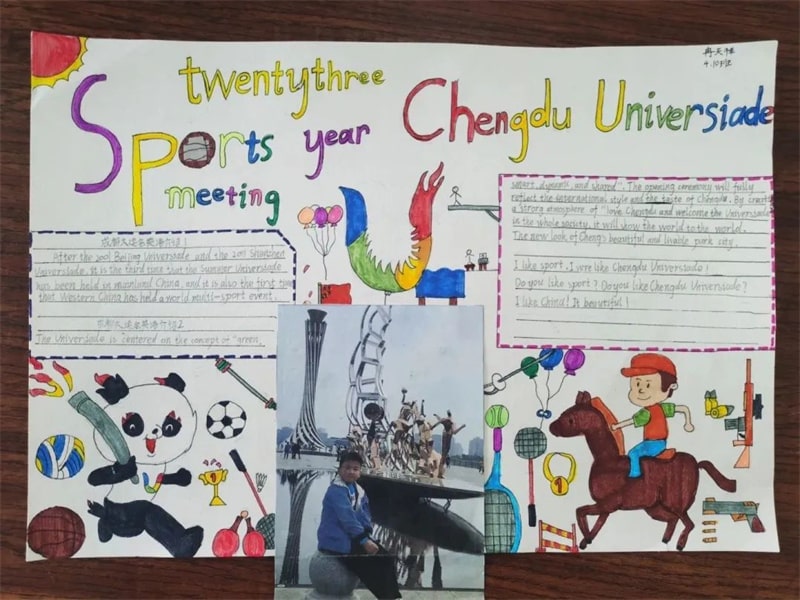 twentythree
Sports year
meeting
Chengdu Universiade
4.10班
After the 2001 Beijing Universiade and the 2011 Shenzhen
Universiade. It is the third time that the Summer Universiade
has been held in mainland China, and it is also the first time
that Western China has held a world multi-sport event.
The Universiade is centered on the concept of "green,
smart, dynamic and shared". The opening ceremony will fully
reflect the international style and the taste of Chengdu. By creatin
a strong atmosphere of "love Chengdu and welcome the Universiade
in the whole society, it will show the world to the world.
The new look of Cheng's beautiful and livable park city.
I like sport. I vere like Chengdu Universiade!
Do you like sport? Do you like Chengdu Universiade?
I like China! It beautiful!
1